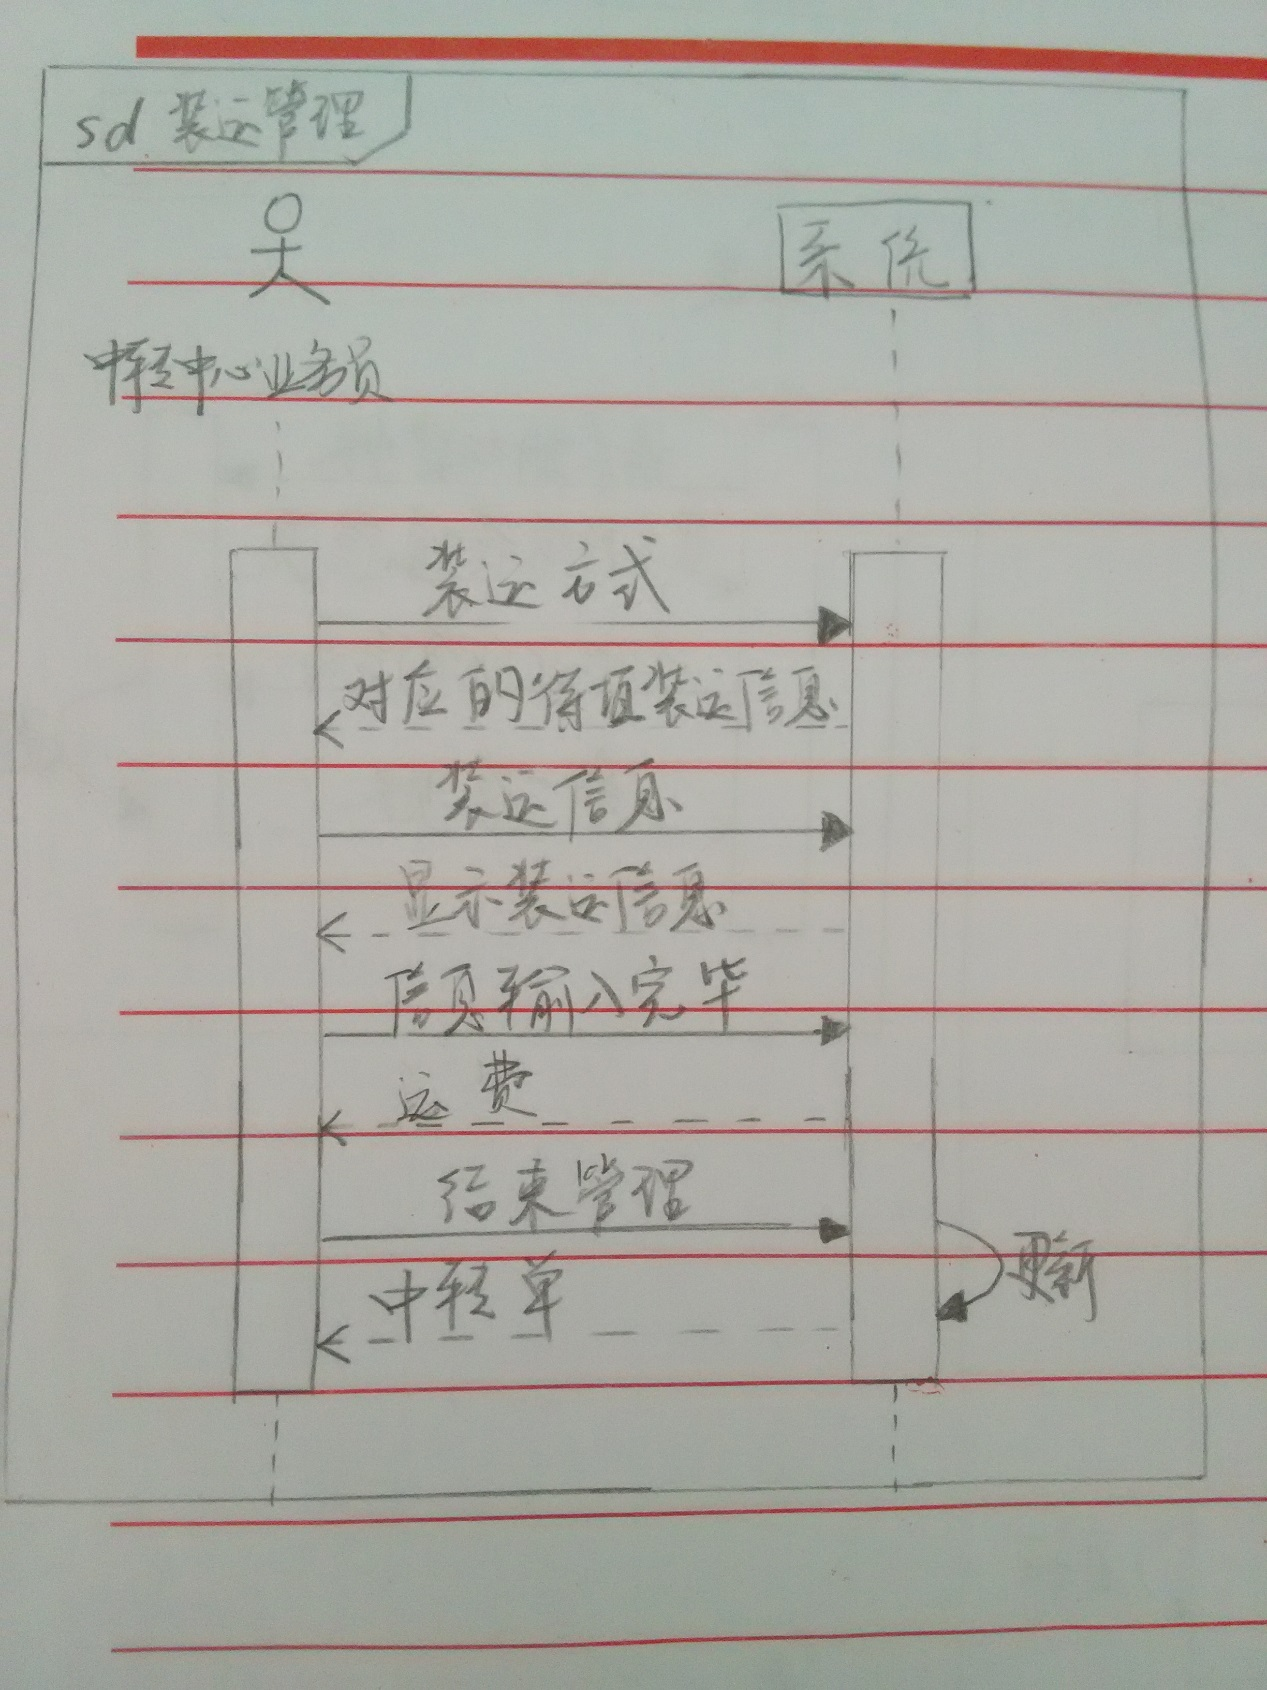 sd 装运管理
系统
中转中心业务员
装运方式
对应的待填装运信息
装运信息
显示装运信息
信息输入完毕
运费
结束管理
更新
中转单